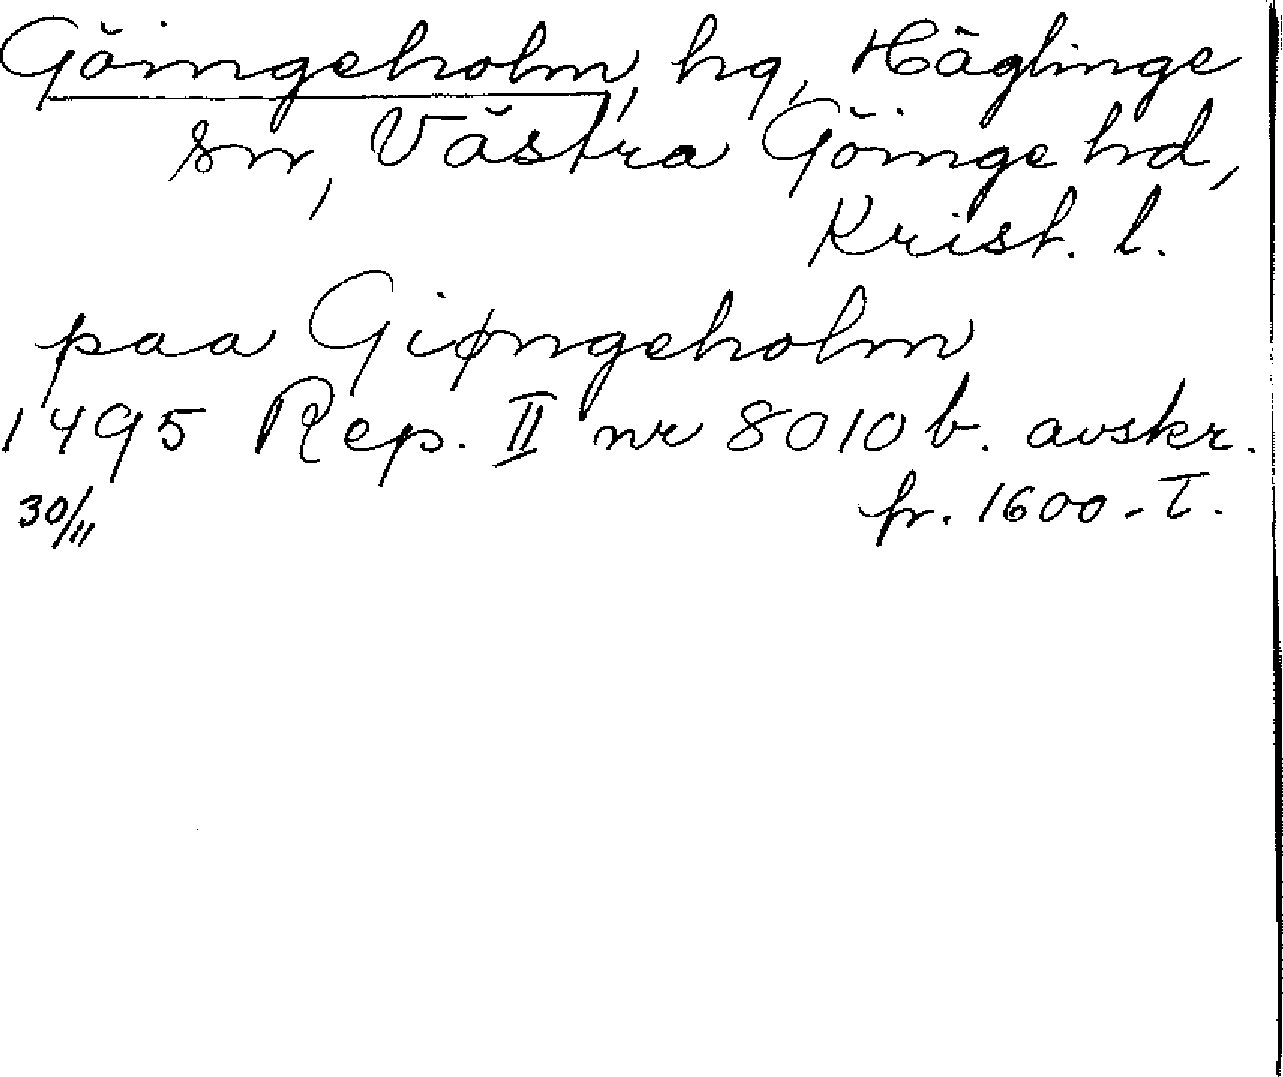 Göingeholm, hg, Häglinge
sn, Västra Göinge hd,
Krist. l.
paa Giøngeholm
1495 Rep. II nr 8010 b. avskr.
30/11 fr. 1600-T.